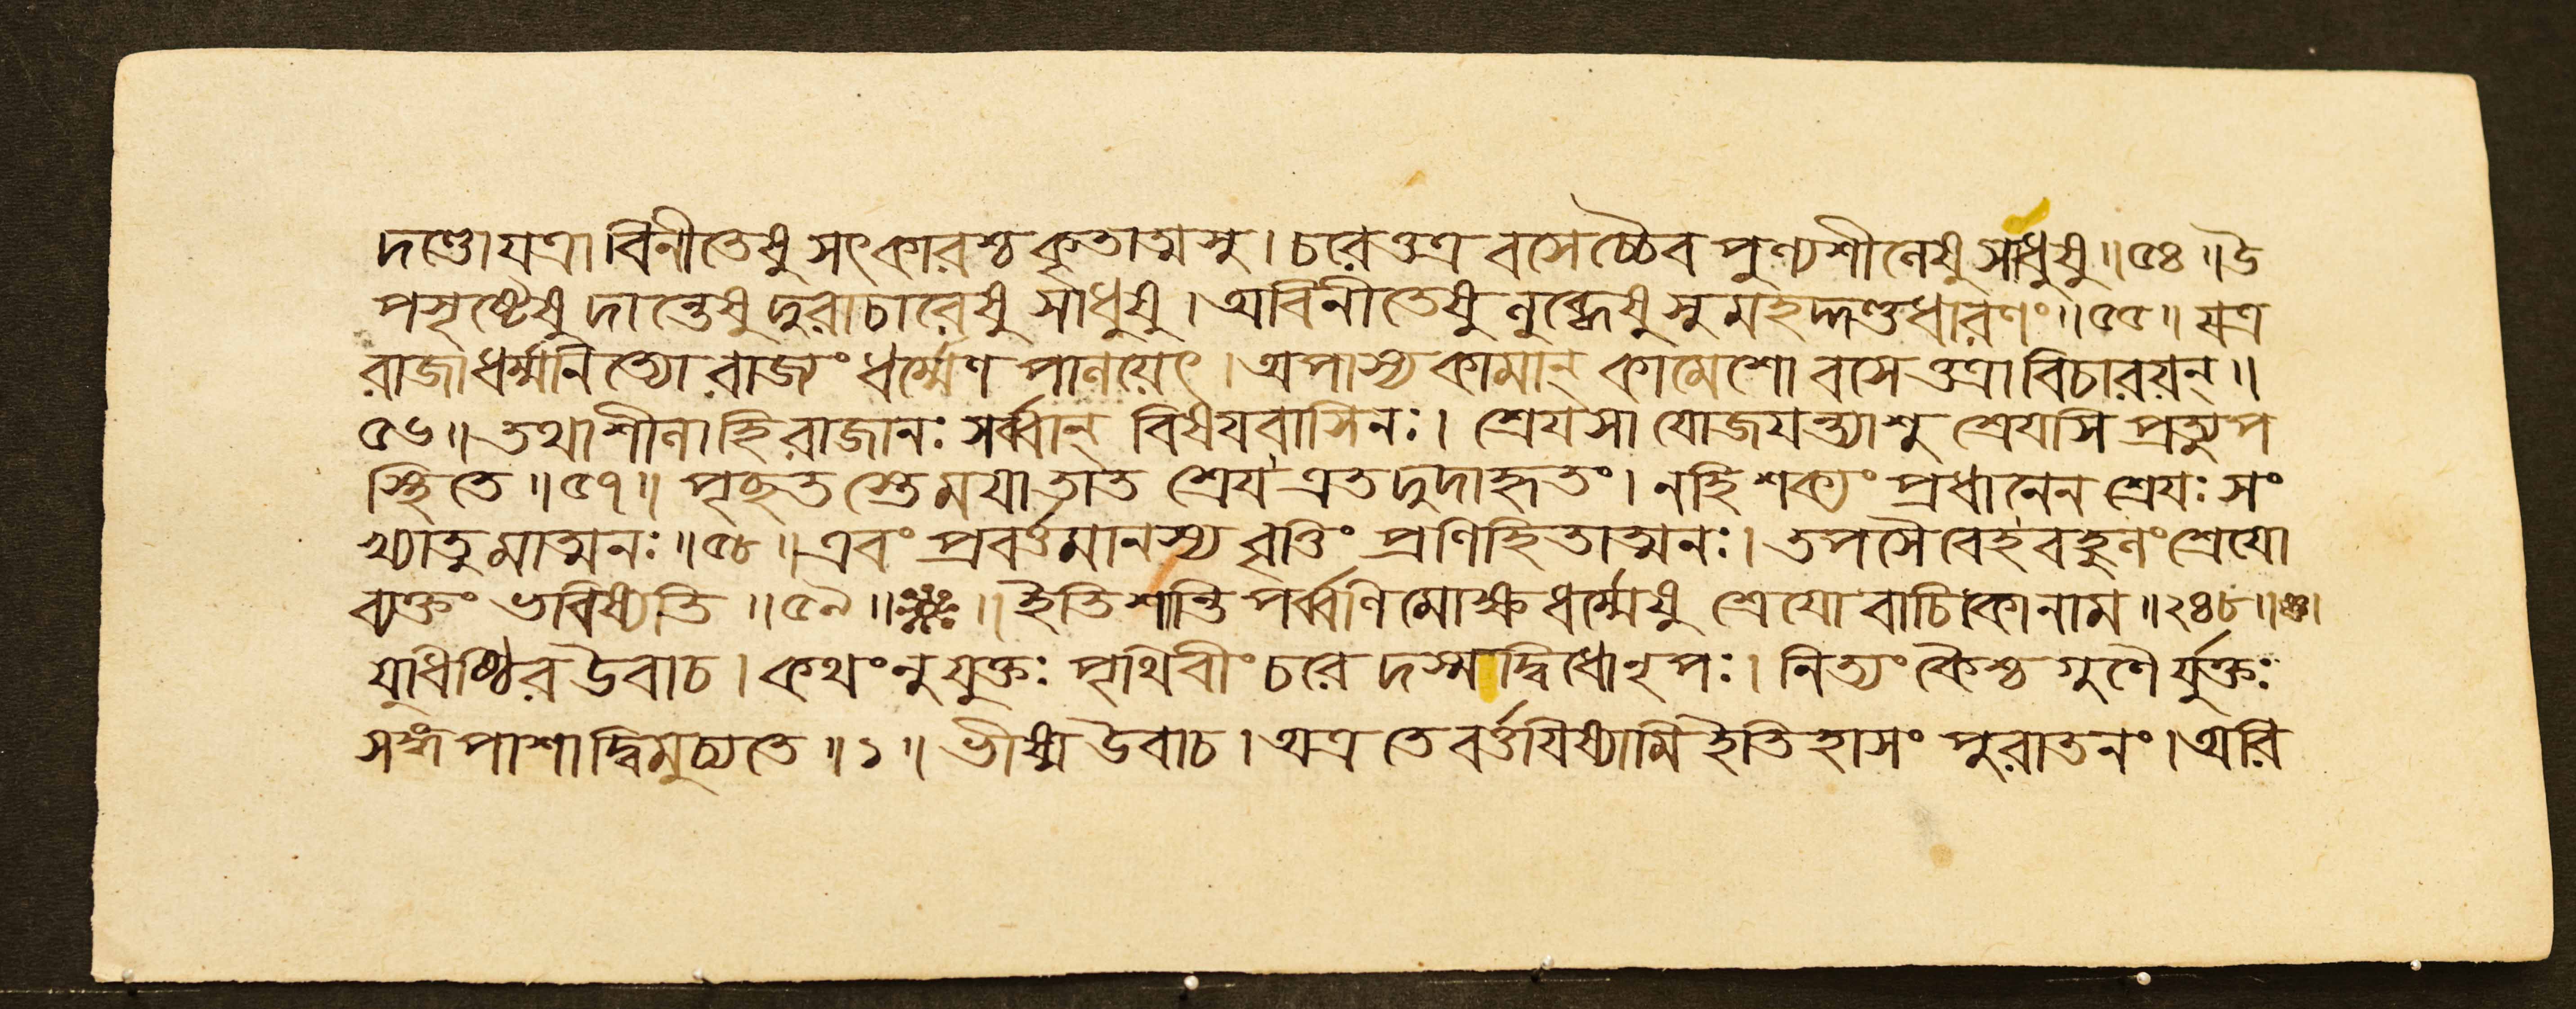 দণ্ডো যত্রাবিনীতেষু সৎকারশ্চ কৃতাত্মসু। চরেত্তত্র বসেচ্চৈব পুণ্যশীলেষু সাধুষু॥৫৪॥উ
পসৃষ্টেষু দান্তেষু দুরাচারেষু সাধুষু। অবিনীতেষু লুব্ধেষু সুমহদ্দণ্ডধারণং॥৫৫॥ যত্র
রাজা ধর্ম্মনিত্যো রাজ্যং ধর্ম্মেণ পালয়েৎ। অপাস্য কামান্ কামেশো বসেত্তত্রাবিচারয়ন্॥
৫৬॥ তথাশীলা হি রাজানঃ সর্ব্বান্ বিষয়বাসিনঃ। শ্রেয়সা যোজয়ন্ত্যাশু শ্রেয়সি প্রত্যুপ
স্থিতে॥৫৭॥ পৃচ্ছতস্তে ময়া তাত শ্রেয় এতদুদাহৃতং। নহি শক্যং প্রধানেন শ্রেয়ঃ সং
খ্যাতুমাত্মনঃ॥৫৮॥ এবং প্রবর্ত্তমানস্য বৃত্তিং প্রণিহিতাত্মনঃ। তপসৈবেহ বহুলং শ্রেয়ো
ব্যক্তং ভবিষ্যতি॥৫৯॥ ॥ ইতি শান্তিপর্ব্বণি মোক্ষধর্ম্মেষু শ্রেয়োবাচিকো নাম॥২৪৮॥
যুধিষ্ঠির উবাচ। কথং নু যুক্তঃ পৃথিবীং চরেদস্মদ্বিধো নৃপঃ। নিত্যং কৈশ্চ গুণৈর্যুক্তঃ
সঙ্গপাশাদ্বিমুচ্যতে॥১॥ ভীষ্ম উবাচ। অত্র তে বর্ত্তয়িষ্যামি ইতিহাসং পুরাতনং। অরি